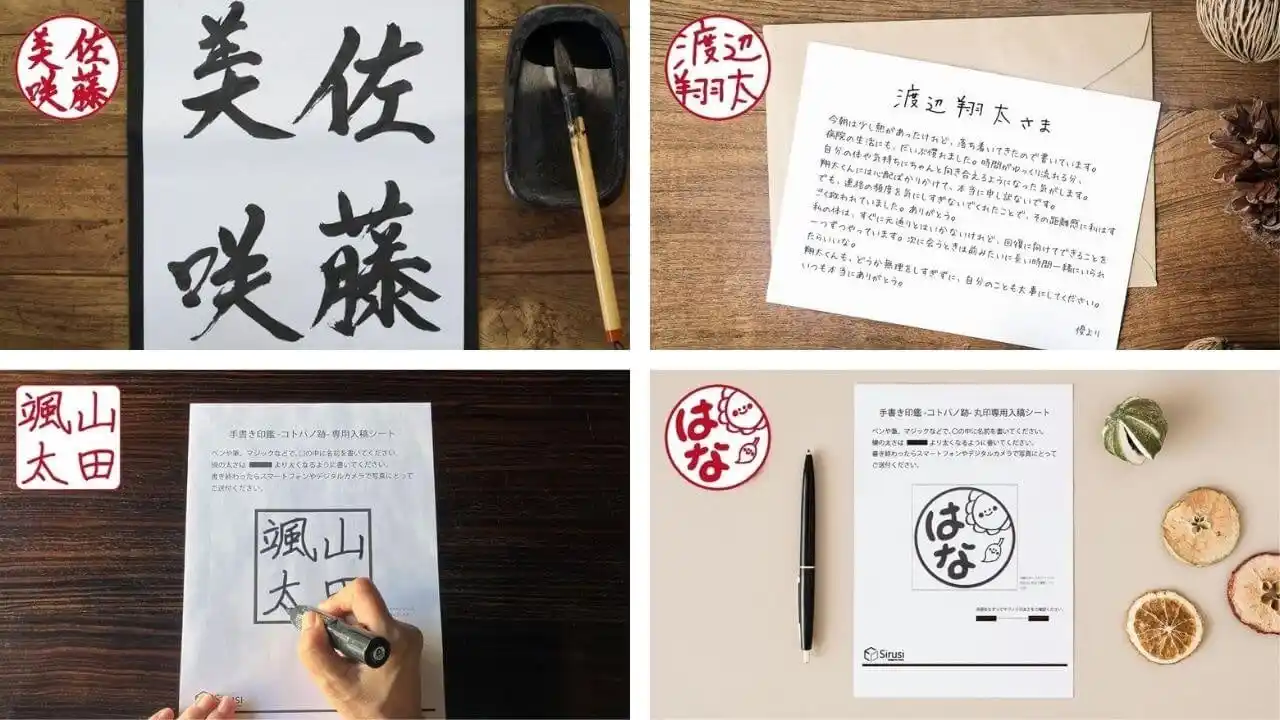 佐藤
美咲
佐藤
美咲
渡辺
翔太
渡辺翔太さま
今朝は少し熱があったけれど、落ち着いてきたので書いています。
病院の生活にも、だいぶ慣れました。時間がゆっくり流れる分、
自分の体や気持ちにちゃんと向き合えるようになった気がします。
翔太くんには心配ばかりかけて、本当に申し訳ないです。
でも、連絡の頻度を気にしすぎないでくれたことで、その距離感に私はす
ごく救われていました。ありがとう。
私の体は、すぐに元通りとはいかないけれど、回復に向けてできることを
一つずつやっています。次に会うときは前みたいに長い時間一緒にいられ
たらいいな。
翔太くんも、どうか無理をしすぎずに、自分のことも大事にしてください。
いつも本当にありがとう。
優より
山田
颯太
手書き印鑑 -コトバノ跡- 専用入稿シート
ペンや筆、マジックなどで、〇の中に名前を書いてください。
線の太さは より太くなるように書いてください。
書き終わったらスマートフォンやデジタルカメラで写真にとって
ご送付ください。
山田
颯太
Sirusi
はな
手書き印鑑 -コトバノ跡- 丸印専用入稿シート
ペンや筆、マジックなどで、〇の中に名前を書いてください。
線の太さは より太くなるように書いてください。
書き終わったらスマートフォンやデジタルカメラで写真にとって
ご送付ください。
はな
Sirusi